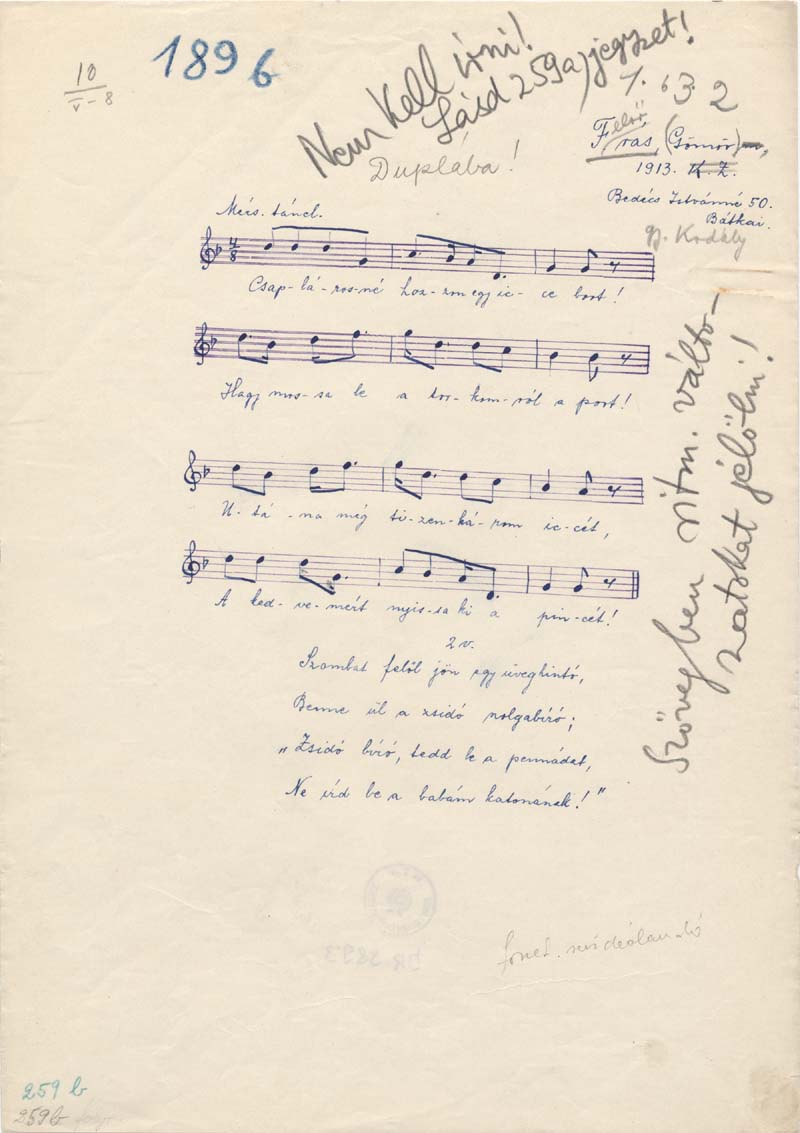 10
V-8
189 b
Nem kell irni!
Lásd 259a) jegyzet!
Duplába!
1. 6 3. 2
Felső
F. vás, (Gömör),
1913. K. Z.
Bedécs Istvánné 50.
Bátkai.
gy. Kodály
Mérs. táncl.
4/8
Csap-lá-ros-né hoz-zon egy ic-ce bort!
Hagy mos-sa le a tor-kom-ról a port!
U-tá-na még ti-zen-há-rom ic-cét,
A ked-ve-mért nyis-sa ki a pin-cét!
2 v.
Szombat felől jön egy üveghintó,
Benne ül a zsidó szolgabíró;
„Zsidó bíró, tedd le a pennádat,
Ne írd be a babám katonának!"
Szövegben ritm.válto-
zatokat jelölni!
259 b
259 b